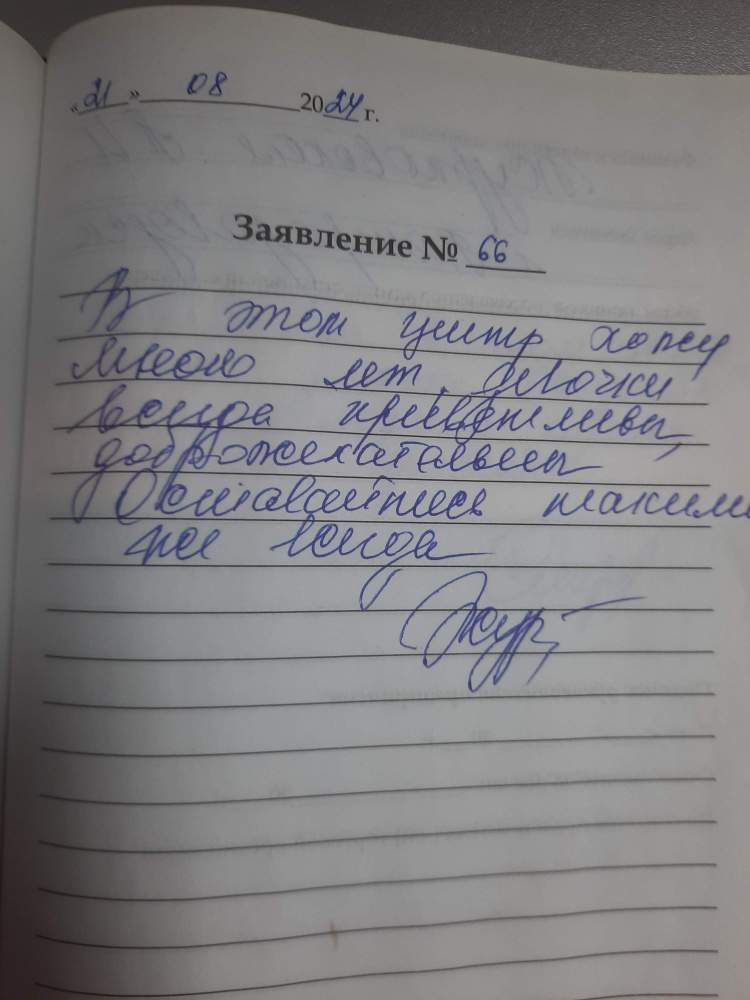 «21» 08 2024 г.
Заявление № 66
В этом центр хожу
много лет. Девочки
всегда приветливы,
доброжелательны
Оставайтесь такими
же всегда